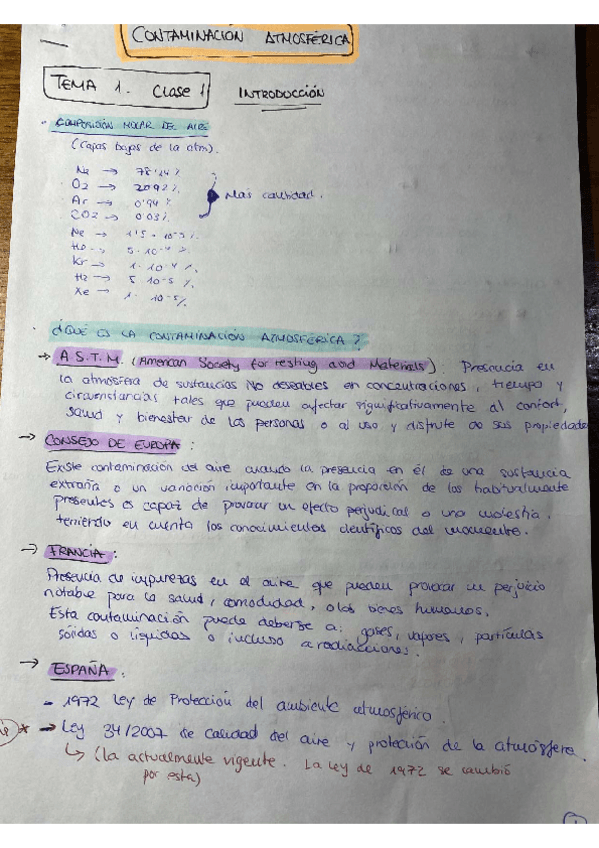 CONTAMINACION ATMOSFÉRICA
TEMA 1. Clase 1 INTRODUCCIÓN
· COMPOSICIÓN MOLAR DEL AIRE
(Capas bajas de la atm).
N2 → 78'14%
O2 → 20'92%
Ar → 0'94%
CO2 → 0'03%
Mas cantidad.
Ne → 1'5 · 10-3%
He → 5 · 10-4%
Kr → 1 · 10-4%
H2 → 5 10-5%
Xe → 1 · 10-5%
· ¿QUÉ ES LA CONTAMINACIÓN ATMOSFÉRICA?
→ A.S.T.M. (American Society for testing and Materials) Presencia en
la atmosfera de sustancias NO deseables en concentraciones, tiempo y
circunstancias tales que pueden afectar significativamente al confort,
salud y bienestar de las personas o al uso y disfrute de sus propiedades
→ CONSEJO DE EUROPA:
Existe contaminación del aire cuando la presencia en él de una sustancia
extraña o un variación importante en la proporción de los habitualmente
presentes es capaz de provocar un efecto perjudicial o una molestia.
teniendo en cuenta los conocimientos científicos del momento.
→ FRANCIA:
Presencia de impurezas en el aire que pueden provocar un perjuicio
notable para la salud, comodidad, o los bienes humanos.
Esta contaminación puede deberse a: gases, vapores, partículas
sólidas o líquidas o incluso a radiaciones.
→ ESPAÑA:
- 1972 Ley de Protección del ambiente atmosférico.
* → Ley 34/2007 de calidad del aire y protección de la atmósfera.
↳ (la actualmente vigente. La Ley de 1972 se cambió
por esta)
1